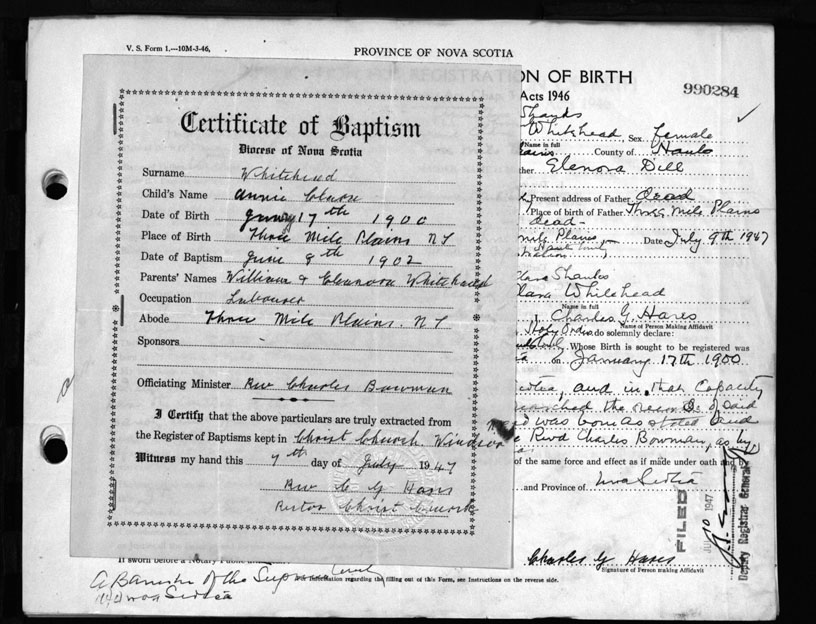 V. S. Form 1.—10M-3-46.
PROVINCE OF NOVA SCOTIA
ON OF BIRTH
Acts 1946
990284
Shanks
Whitehead, Sex female
Name in full
Plains County of Hants
ther Elenora Dill
Present address of Father Dead
Place of birth of Father Three Mile Plains
dead
Mile Plains Date July 9th 1947
Clara Shanks
Clara Whitehead
Name in full
I, Charles G. Hares
Name of Person Making Affidavit
Holy Orders do solemnly declare:
Whose Birth is sought to be registered was
on January 17th 1900
Scotia, and in that Capacity
searched the records of said
was born as stated and
Revd Charles Bowman, as by
of the same force and effect as if made under oath and by
and Province of Nova Scotia
FILED
JUL 10 1947
Deputy Registrar General
Charles G Hares
Signature of Person making Affidavit
Certificate of Baptism
Diocese of Nova Scotia
Surname Whitehead
Child's Name Annie Clara
Date of Birth January 17th 1900
Place of Birth Three Mile Plains NS
Date of Baptism June 8th 1902
Parents' Names William & Eleanora Whitehead
Occupation Labourer
Abode Three Mile Plains. NS
Sponsors -
Officiating Minister Rev Charles Bowman
I Certify that the above particulars are truly extracted from
the Register of Baptisms kept in Christ Church, Windsor
Witness my hand this 7th day of July 1947
Rev C G Hares
Rector Christ Church
If sworn before a Notary Public
A Barrister of the Supreme Court
of Nova Scotia
information regarding the filling out of this Form, see Instructions on the reverse side.